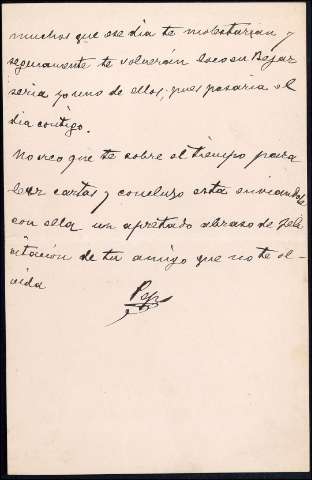 muchos que ese dia te molestarian y
seguramente te volverán loco en Bejar
seria yo uno de ellos, pues pasaria el
dia contigo.
No veo que te sobre el tiempo para
leer cartas y concluyo esta enviandote
con ella un apretado abrazo de feli
citación de tu amigo que no te ol-
vida
Pepe